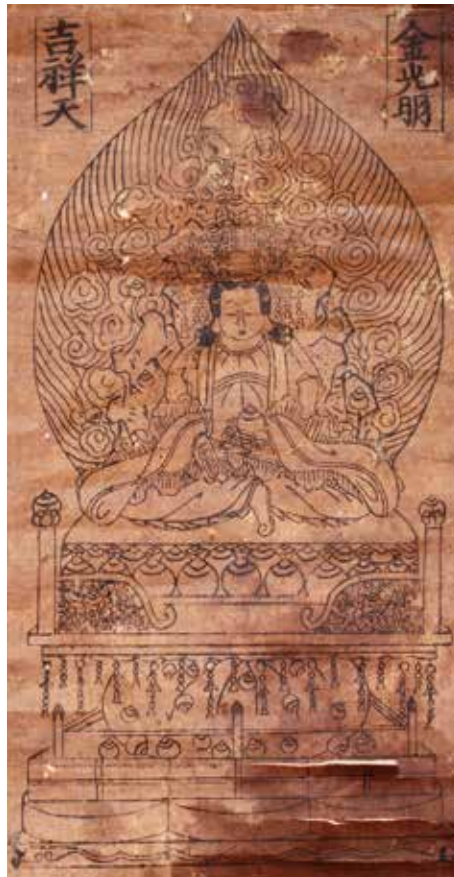 金光明
吉祥天